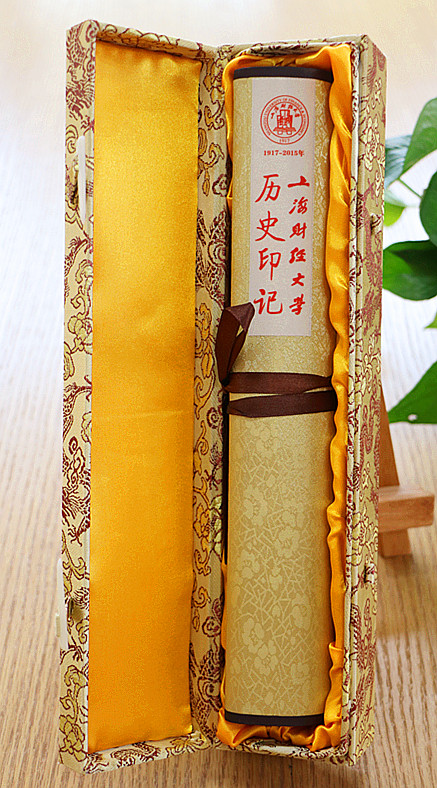 1917
1917-2015年
上海财经大学
历史印记